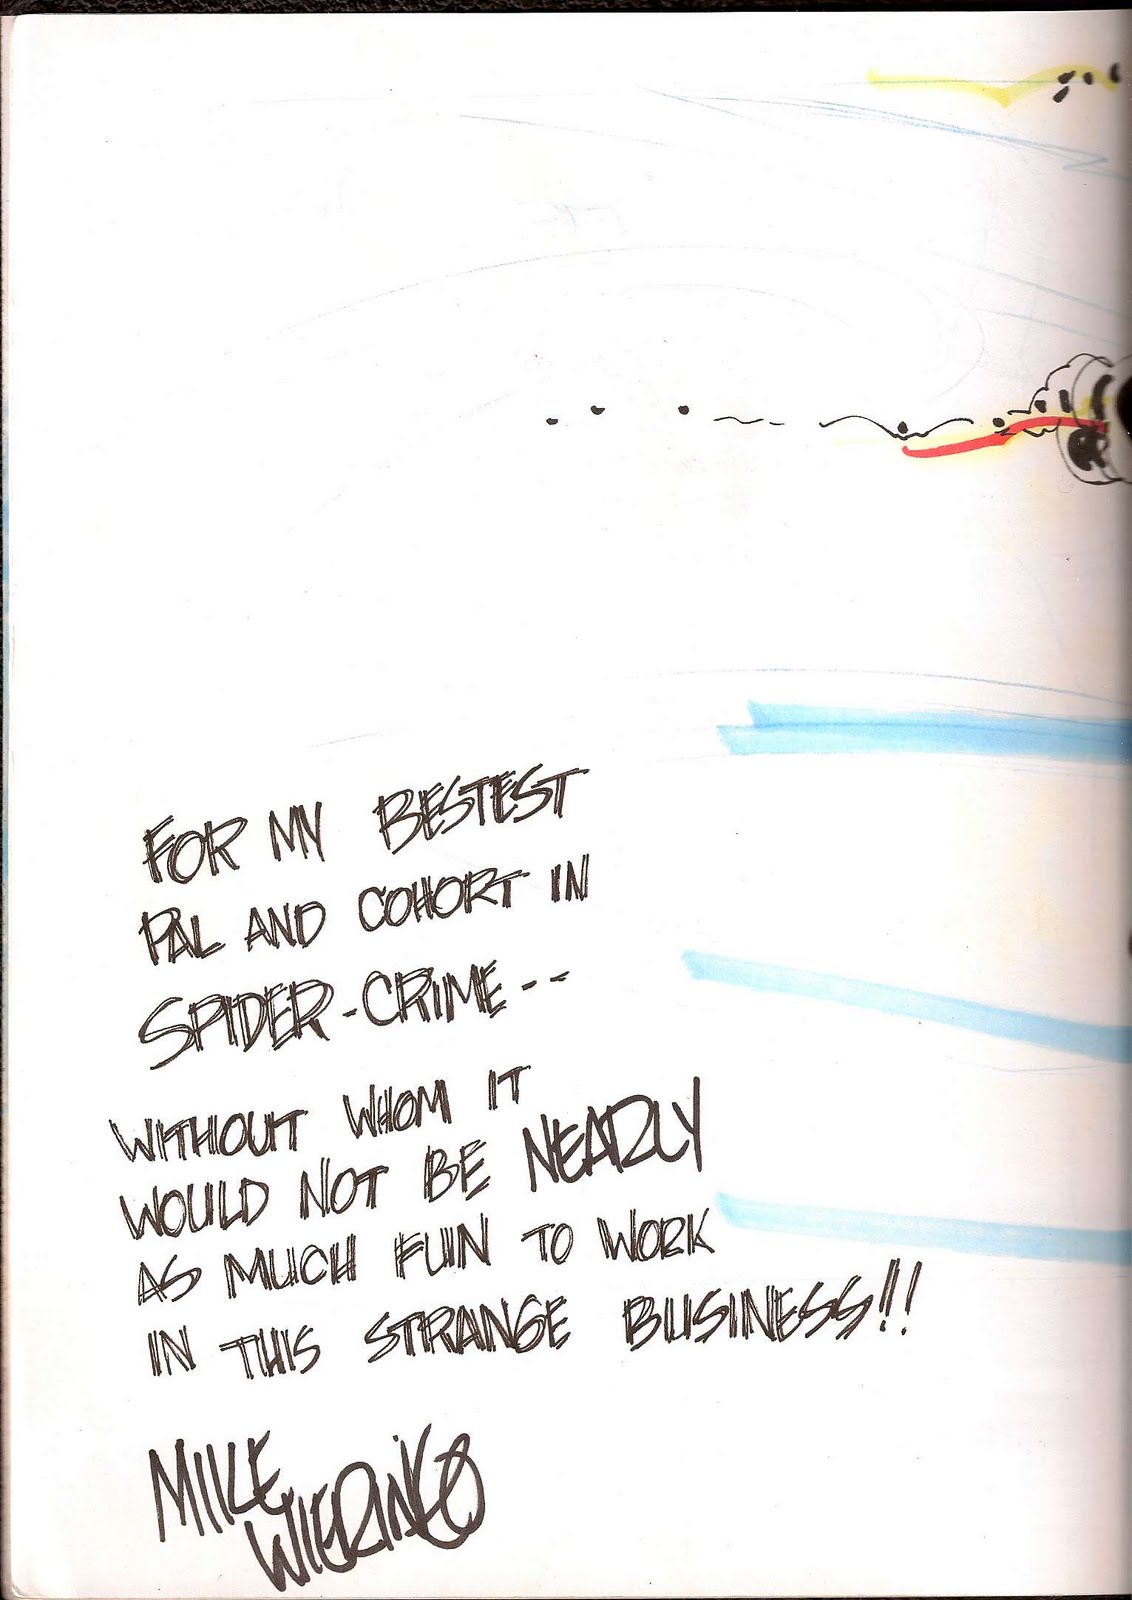 FOR MY BESTEST
PAL AND COHORT IN
SPIDER-CRIME--
WITHOUT WHOM IT
WOULD NOT BE NEARLY
AS MUCH FUN TO WORK
IN THIS STRANGE BUSINESS!!
MIKE
WIERINGO